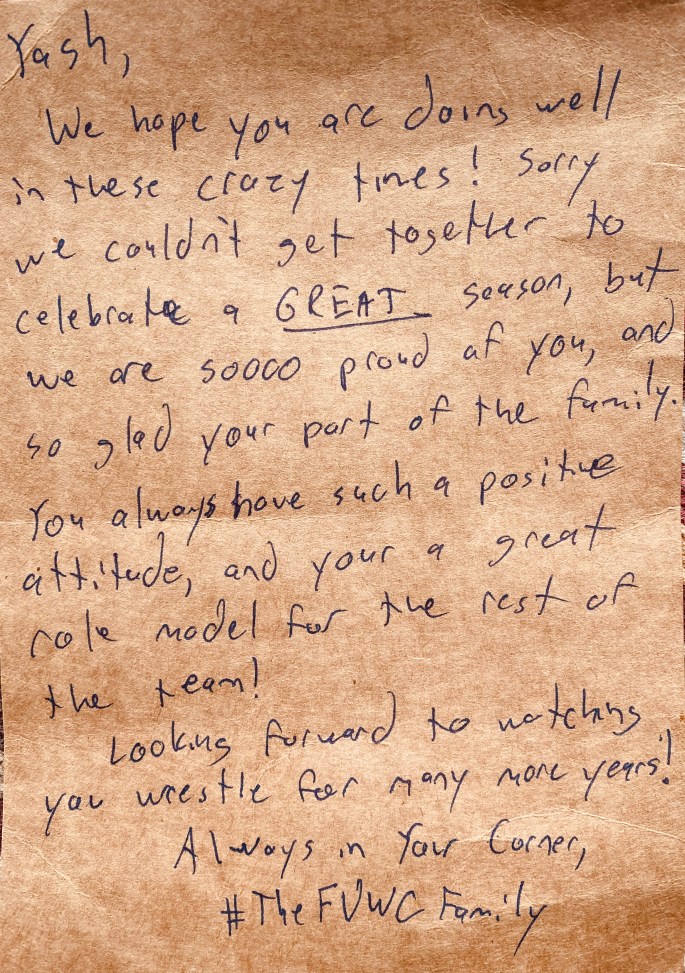 Yash,
We hope you are doing well
in these crazy times! Sorry
we couldn't get together to
celebrate a GREAT season, but
we are soooo proud of you, and
so glad your part of the family.
You always have such a positive
attitude, and your a great
role model for the rest of
the team!
Looking forward to watching
you wrestle for many more years!
Always in Your Corner,
#TheFVWC Family